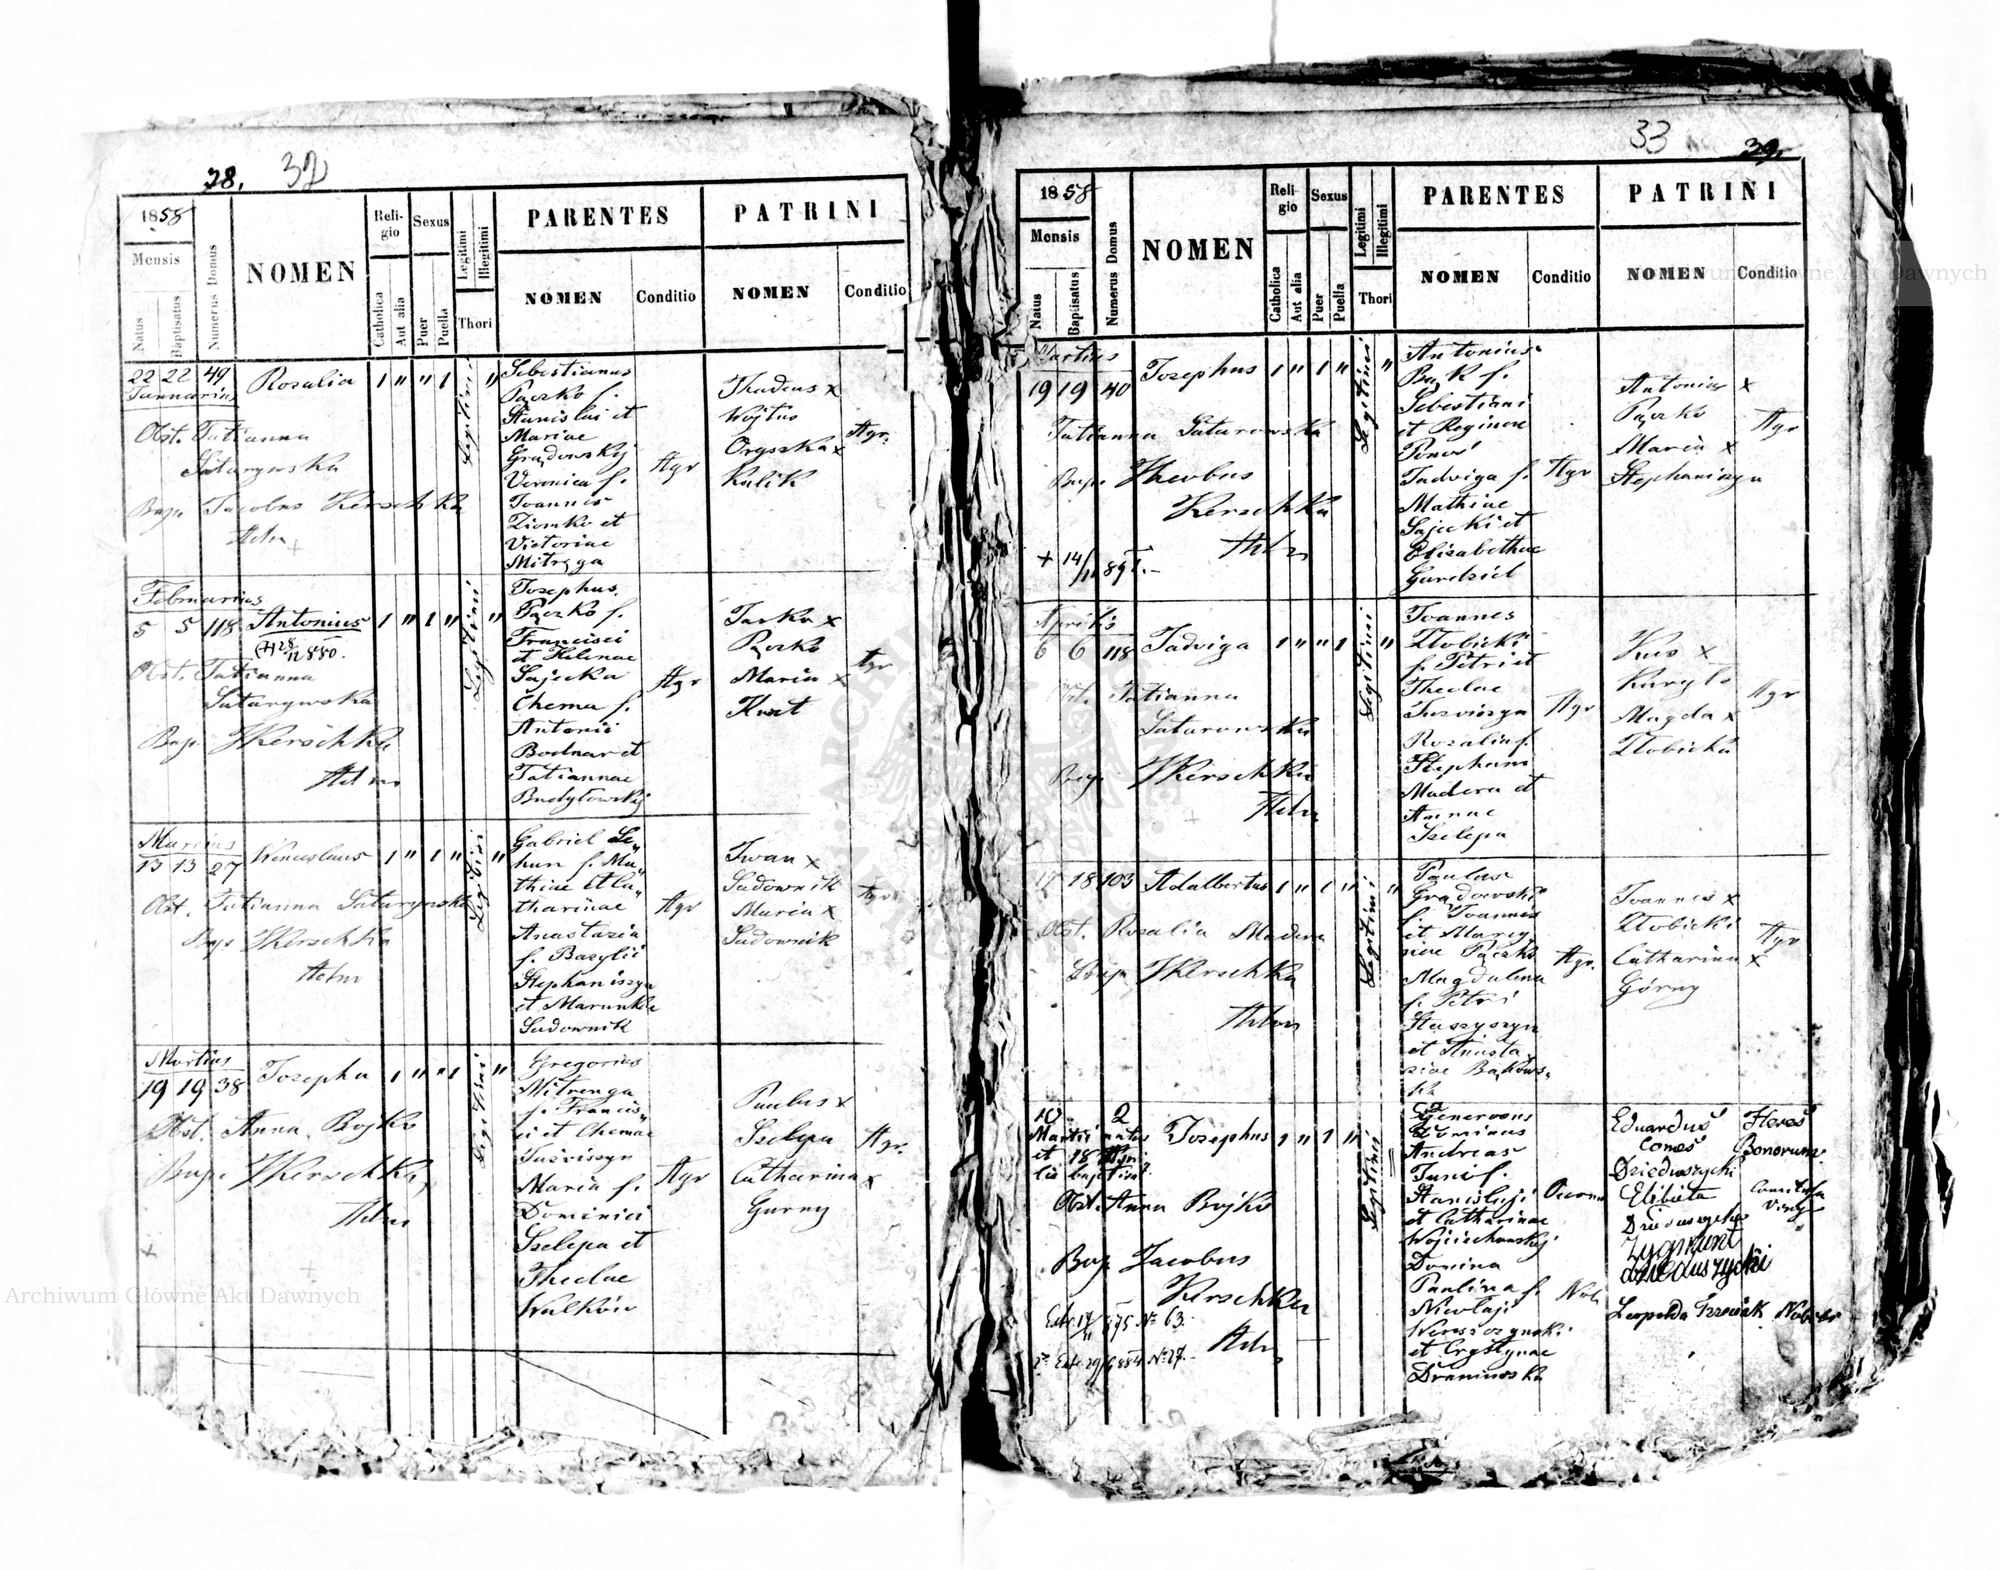 38. 32
1858
Mensis
Natus
Baptisatus
Numerus Domus
NOMEN
Religio
Catholica
Aut alia
Sexus
Puer
Puella
Legitimi
Illegitimi
Thori
PARENTES
NOMEN
Conditio
PATRINI
NOMEN
Conditio
22 22 49 Rosalia 1 " " 1 "
Januarius
Obst. Tatianna
Bap. Jacobus Kerschka
Adm
Legitimi
Sebestianus
Pączko f.
Stanislai et
Mariae
Gradowskij
Veronica f.
Joannis
Ziomko et
Victoriae
Mitręga
Agr
Thadeus x
Wojtus
Oryszka x
Kulik
Agr.
Februarius
5 5 118 Antonius 1 " 1 " "
Obst. Tatianna
Saturynska
Bap. JKerschka
Adm
Legitimi
Josephus
Pączko f.
Francisci
et Helenae
Sajecka
Chema f.
Antonii
Bodnar et
Tatiannae
Budylowskij
Agr
Jacko x
Pączko
Maria x
Kurt
Agr
Marcius
13 13 27 Winceslaus 1 " 1 " "
Obst. Tatianna Saturynska
Bap JKerschka
Adm
Legitimi
Gabriel
thiae et Ca"
tharinae
Anastazia
f. Bazylii
Stephaniszyn
et Marunkae
Sadownik
Agr
Iwan x
Sadownik
Maria x
Sadownik
Agr
Martius
19 19 38 Josepha 1 " " 1 "
Obst. Anna Bojko
Bap. JKerschka
Adm
Legitimi
Gregorius
Mitrenga
f. Francis"
ci et Chemae
Maria f.
Dominici
Szelepa et
Theclae
Agr
Paulus x
Szelepa
Catharina x
Gurny
Agr.
33 39.
1858
Mensis
Natus
Baptisatus
Numerus Domus
NOMEN
Religio
Catholica
Aut alia
Sexus
Puer
Puella
Legitimi
Illegitimi
Thori
PARENTES
NOMEN
Conditio
PATRINI
NOMEN
Conditio
Martius
19 19 40 Josephus 1 " 1 " "
Tatianna Saturowska
Bap. Jacobus
Kerschka
Adm
Legitimi
Antonius
Bąk f.
Sebestiani
et Reginae
Jadviga f.
Mathiae
Sajecki et
Elizabethae
Gurdziel
Agr
Antonius x
Pączko
Maria x
Stephaniszyn
Agr
Aprilis
6 6 118 Jadviga 1 " " 1 "
Obst. Tatianna
Saturowska
Bap JKerschka
Adm
Legitimi
Joannes
Złobicki
f. Petri et
Theclae
Rosalia f.
Stephani
Madera et
Annae
Szelepa
Agr
Kus x
Kuryło
Magda x
Złobicka
Agr
17 18 103 Adalbertus 1 " 1 " "
Obst. Rosalia Madera
Bap JKerschka
Adm
Legitimi
Paulus
Gradowski
f. Joannis
et Maryy
nae Pączko
Magdalena
f. Petri
Staszyszyn
et Anasta
ziae Bąkows.
ka
Agr.
Joannes x
Złobicki
Catharina x
Górny
Agr
10 2 Josephus 1 " 1 "
Martii natus
et 18 Apri
lis baptisat.
Obst. Anna Bojko
Bap. Jacobus
Kerschka
Adm
Extr. 17/11 875 No 63.
2o Extr. 29/6 884 No 27.
Legitimi
Generosus
Dominus
Andreas
Stanislaji
et Catharinae
Wojciechowskij
Domina
Paulina f.
Nicolaji
Wereszczynski
et Crystynae
Draminska
Eduardus Heres
Comes Bonorum
Dzieduszycki
Elżbieta
Dzieduszycka
Zygmunt
Dzieduszycki
Archiwum Główne Akt Dawnych